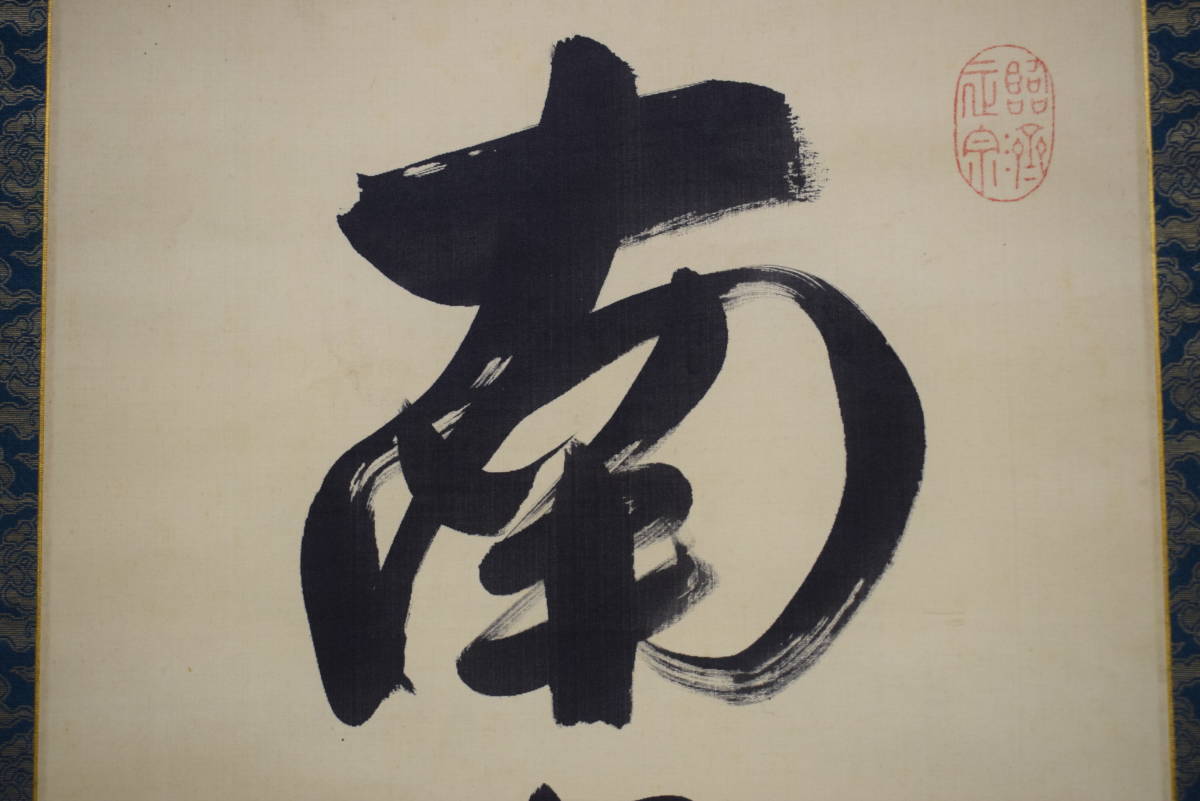 南
臨濟
正宗